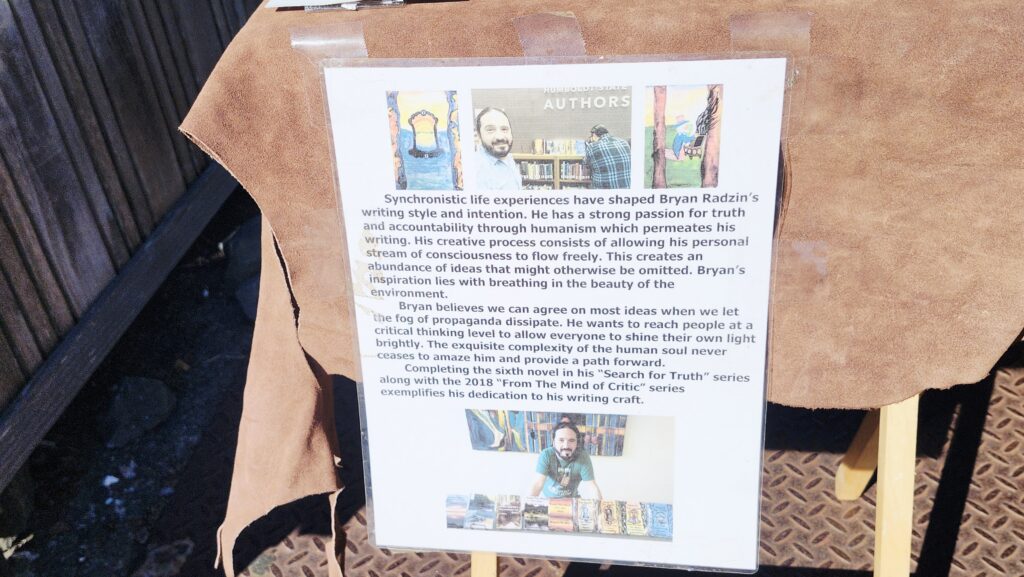 HUMBOLDT STATE
AUTHORS
Synchronistic life experiences have shaped Bryan Radzin's
writing style and intention. He has a strong passion for truth
and accountability through humanism which permeates his
writing. His creative process consists of allowing his personal
stream of consciousness to flow freely. This creates an
abundance of ideas that might otherwise be omitted. Bryan's
inspiration lies with breathing in the beauty of the
environment.
Bryan believes we can agree on most ideas when we let
the fog of propaganda dissipate. He wants to reach people at a
critical thinking level to allow everyone to shine their own light
brightly. The exquisite complexity of the human soul never
ceases to amaze him and provide a path forward.
Completing the sixth novel in his "Search for Truth" series
along with the 2018 "From The Mind of Critic" series
exemplifies his dedication to his writing craft.